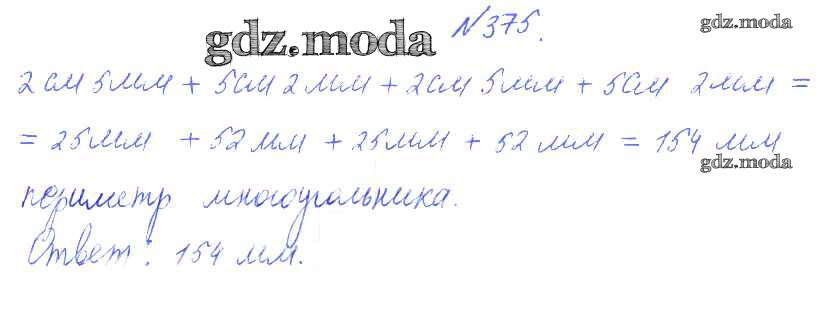 №375.
gdz.moda
gdz.moda
2 см 5мм + 5см 2 мм + 2см 5мм + 5см 2мм =
= 25мм + 52 мм + 25мм + 52 мм = 154 мм
gdz.moda
периметр многоугольника.
Ответ: 154 мм.